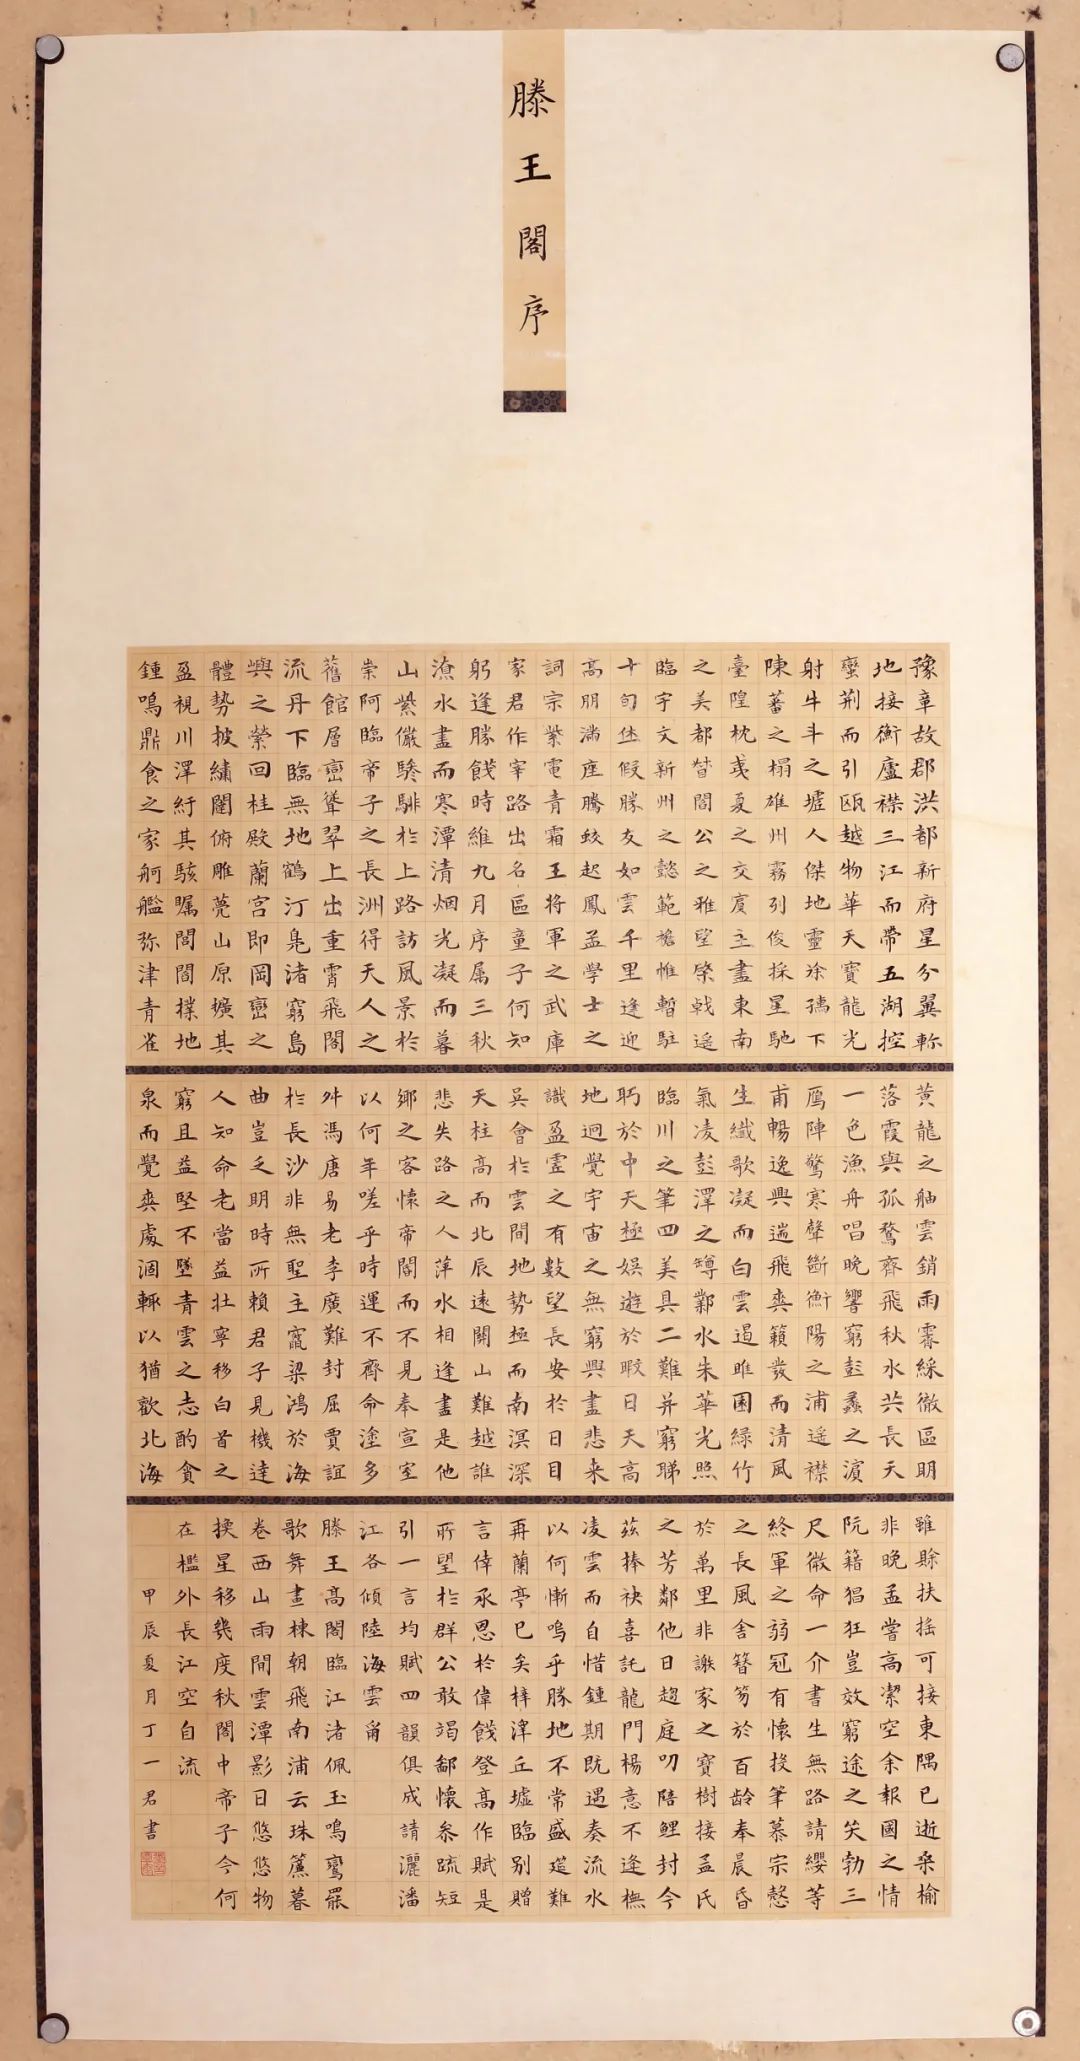 滕王閣序
豫章故郡洪都新府星分翼軫
地接衡廬襟三江而帶五湖控
蠻荆而引甌越物華天寶龍光
射牛斗之墟人傑地靈徐孺下
陳蕃之榻雄州霧列俊採星馳
臺隍枕夷夏之交賓主盡東南
之美都督閻公之雅望棨戟遥
臨宇文新州之懿範襜帷暫駐
十旬休假勝友如雲千里逢迎
高朋滿座騰蛟起鳳孟學士之
詞宗紫電青霜王将軍之武庫
家君作宰路出名區童子何知
躬逢勝餞時維九月序属三秋
潦水盡而寒潭清烟光凝而暮
山紫儼驂騑於上路訪風景於
崇阿臨帝子之長洲得天人之
舊館層巒聳翠上出重霄飛閣
流丹下臨無地鶴汀鳧渚窮島
嶼之縈回桂殿蘭宫即岡巒之
體勢披繡闥俯雕甍山原曠其
盈視川澤紆其駭矚閭閻撲地
鍾鳴鼎食之家舸艦弥津青雀
黄龍之舳雲銷雨霽綵徹區明
落霞與孤鶩齊飛秋水共長天
一色漁舟唱晚響窮彭蠡之濱
鴈陣驚寒聲斷衡陽之浦遥襟
甫暢逸興遄飛爽籟發而清風
生纖歌凝而白雲遏睢園緑竹
氣凌彭澤之罇鄴水朱華光照
臨川之筆四美具二難并窮睇
眄於中天極娱遊於暇日天高
地迥覺宇宙之無窮興盡悲来
識盈虚之有數望長安於日目
吴會於雲間地勢極而南溟深
天柱高而北辰遠關山難越誰
悲失路之人萍水相逢盡是他
鄉之客懷帝閽而不見奉宣室
以何年嗟乎時運不齊命塗多
舛馮唐易老李廣難封屈賈誼
於長沙非無聖主竄梁鴻於海
曲豈乏明時所賴君子見機達
人知命老當益壮寧移白首之
窮且益堅不墜青雲之志酌貪
泉而覺爽處涸轍以猶歡北海
雖賒扶摇可接東隅已逝桑榆
非晚孟嘗高潔空余報國之情
阮籍猖狂豈效窮途之哭勃三
尺微命一介書生無路請纓等
終軍之弱冠有懷投筆慕宗慤
之長風舍簪笏於百齡奉晨昏
於萬里非謝家之寶樹接孟氏
之芳鄰他日趨庭叨陪鯉封今
茲捧袂喜託龍門楊意不逢撫
凌雲而自惜鍾期既遇奏流水
以何慚嗚乎勝地不常盛筵難
再蘭亭已矣梓澤丘墟臨别贈
言倖承恩於偉餞登高作賦是
所望於群公敢竭鄙懷恭疏短
引一言均賦四韻俱成請灑潘
江各傾陸海雲爾
滕王高閣臨江渚佩玉鳴鸞罷
歌舞畫棟朝飛南浦云珠簾暮
卷西山雨間雲潭影日悠悠物
换星移幾度秋閣中帝子今何
在檻外長江空自流
甲辰夏月丁一君書